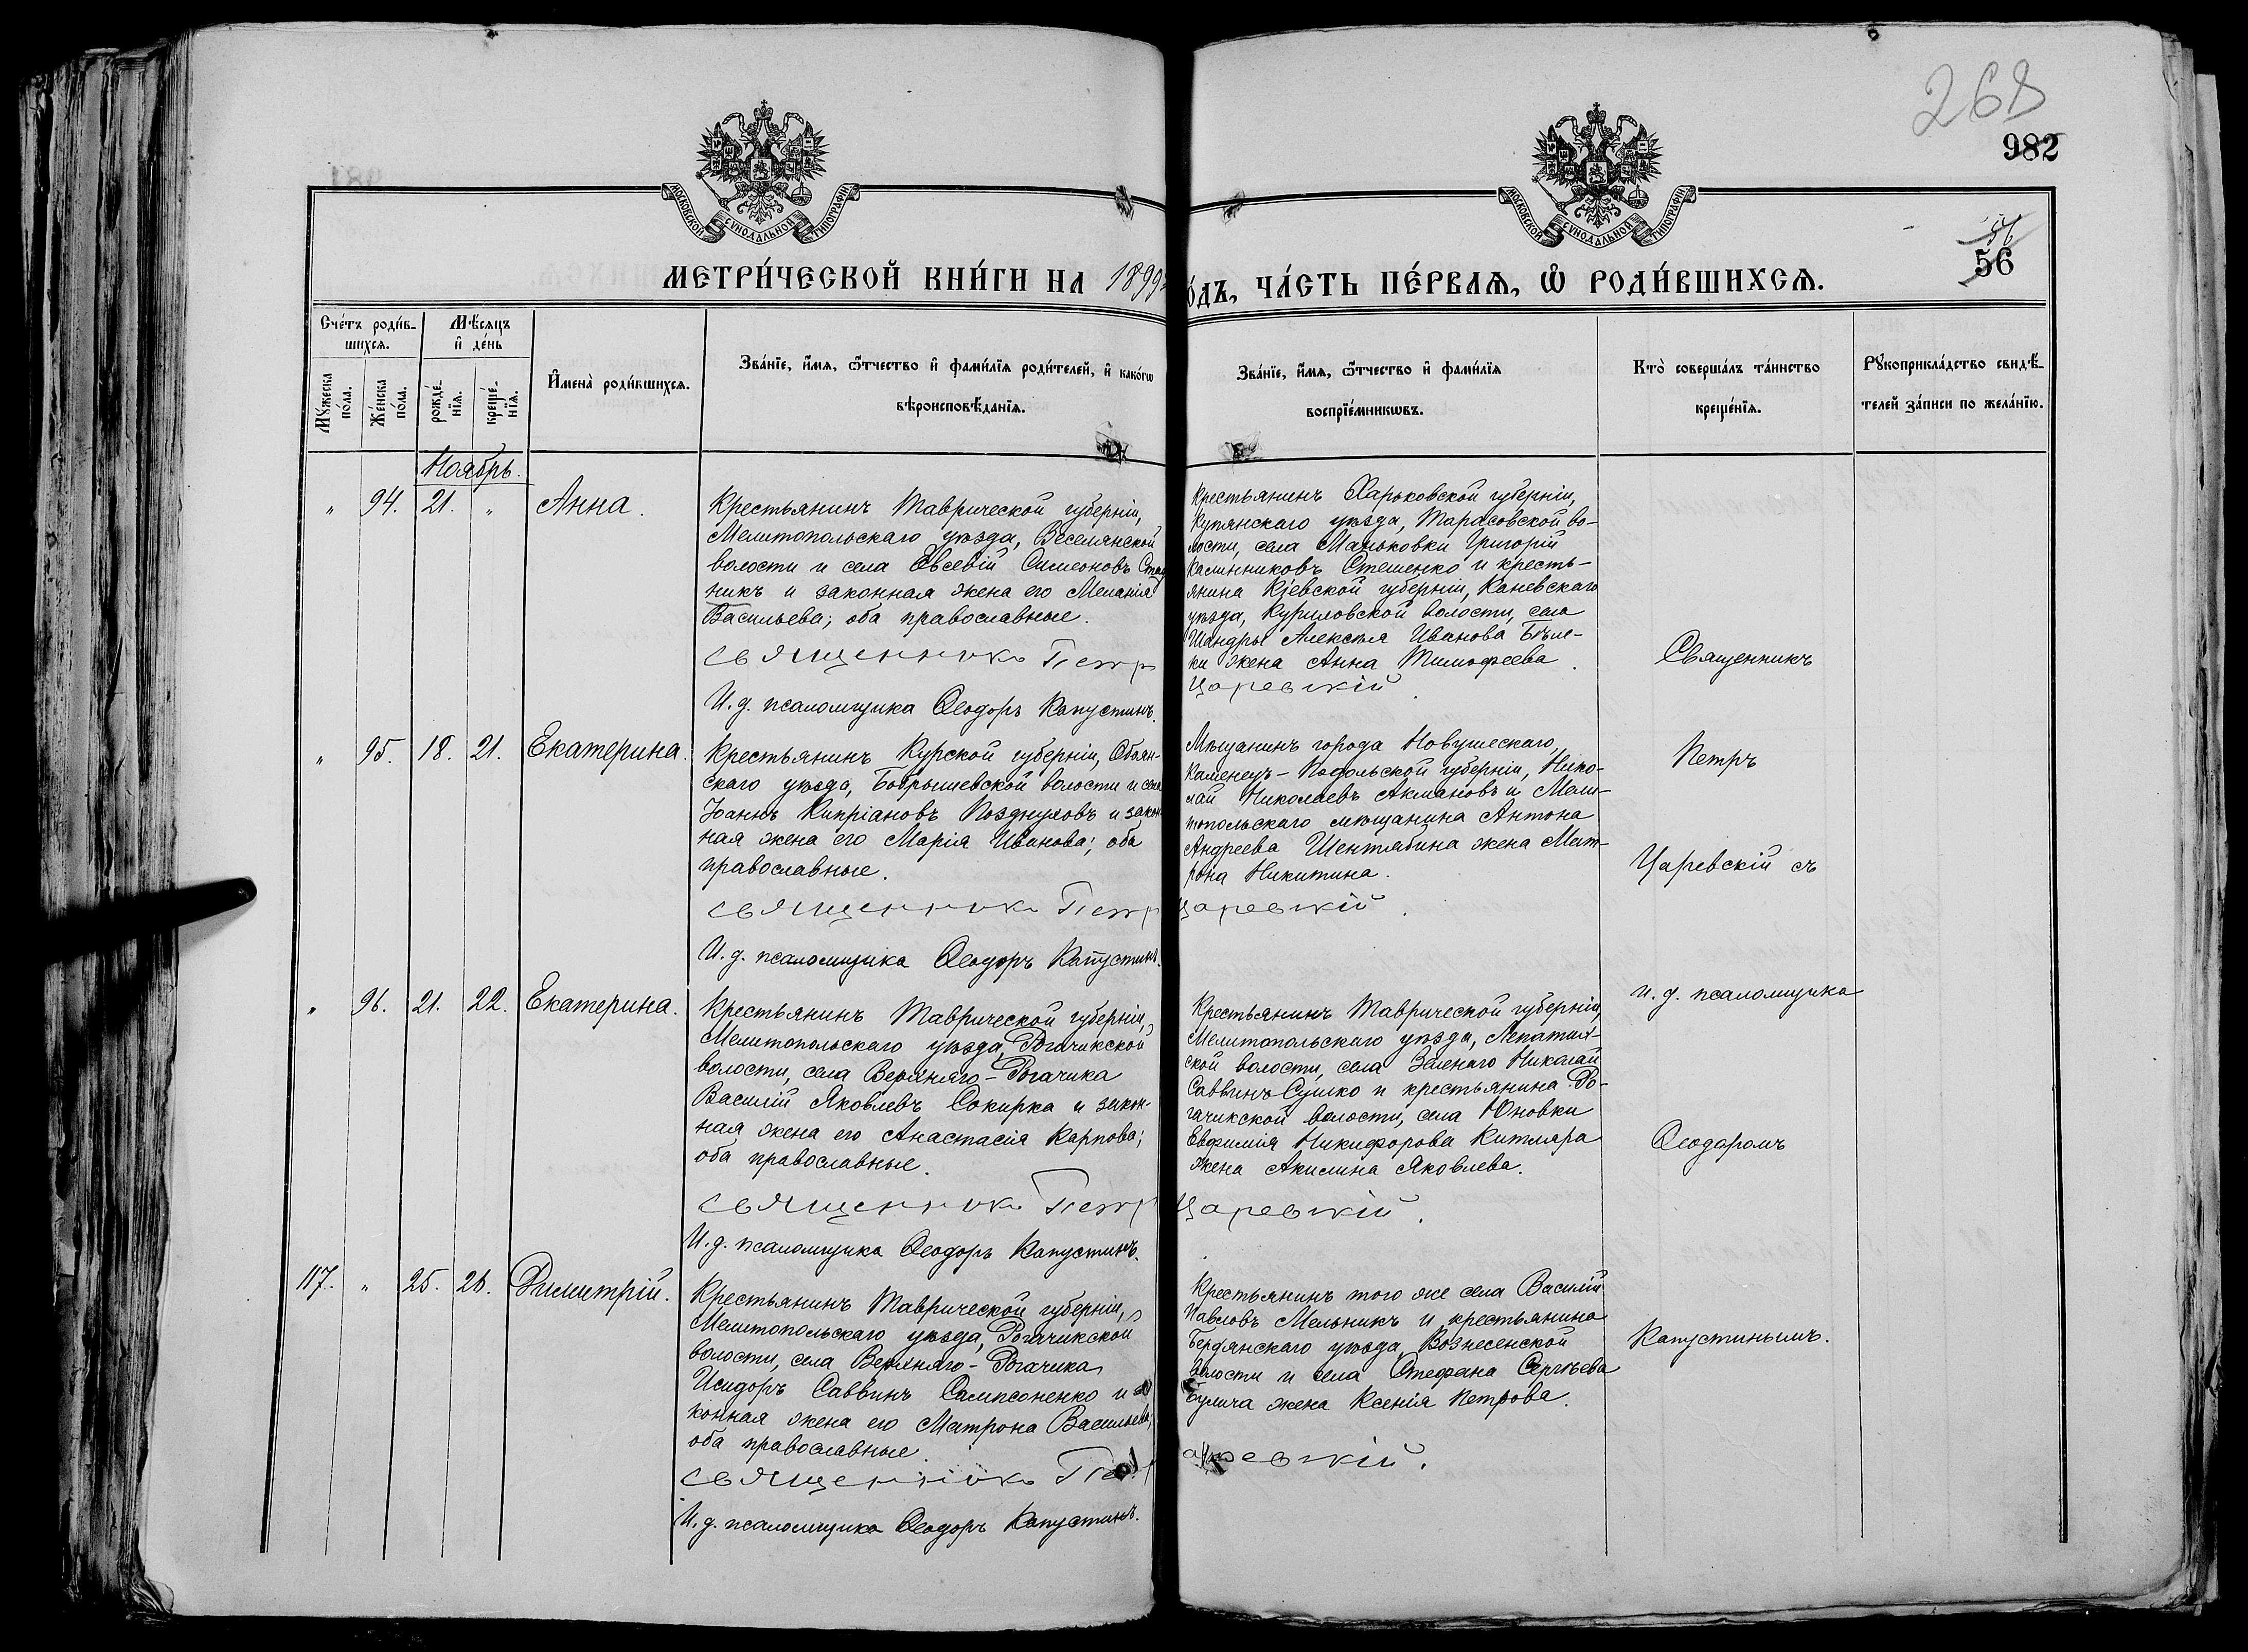 268
982
МОСКОВСКОЙ СѴНОДАЛЬНОЙ ТИПОГРАФІИ
МОСКОВСКОЙ СѴНОДАЛЬНОЙ ТИПОГРАФІИ
56
56
МЕТРИ́ЧЕСКОЙ КНИ́ГИ НА 1899
О́ДЪ, ЧА́СТЬ ПЕ́РВАѦ, Ѽ РОДИ́ВШИХСѦ.
Сче́тъ роди́в-
шихсѧ.
Мꙋ́жеска по́ла.
Же́нска по́ла.
Мѣ́сѧцъ и҆ де́нь
рожде́-нїѧ.
креще́-нїѧ.
И҆мена̀ роди́вшихсѧ.
Зва́нїе, и҆́мѧ, ѻ҆́тчество и҆ фами́лїѧ роди́телей, и҆ како́гѡ
вѣроисповѣ́данїѧ.
Зва́нїе, и҆́мѧ, ѻ҆́тчество и҆ фами́лїѧ
воспрїе́мникѡвъ.
Кто̀ соверша́лъ та́инство
креще́нїѧ.
Рꙋкоприкла́дство свидѣ́-
телей за́писи по жела́нїю.
Ноябрь.
" 94. 21. " Анна.
Крестьянинъ Таврической губерніи,
Мелитопольскаго уѣзда, Веселянской
волости и села Евсевій Симеоновъ
никъ и законная жена его Меланія
Васильева; оба православные.
Священникъ Петр
И. д. псаломщика Ѳеодоръ Капустинъ.
Крестьянинъ Харьковской губерніи,
Купянскаго уѣзда, Тарасовской во-
лости, села Маньковки Григорій
Калинниковъ Стешенко и кресть-
янина Кіевской губерніи, Каневскаго
уѣзда, Куриловской волости, села
Шандры Алексѣя Иванова Бѣле-
ки жена Анна Тимофеева.
Царевскій.
" 95. 18. 21. Екатерина.
Крестьянинъ Курской губерніи, Обоян-
скаго уѣзда, Бобрышевской волости и села
Іоаннъ Кипріановъ Позднуховъ и закон
ная жена его Марія Иванова; оба
православные.
Священникъ Петр
И. д. псаломщика Ѳеодоръ Капустинъ.
Мѣщанинъ города Новушескаго,
Каменецъ-Подольской губерніи, Нико-
лай Николаевъ Акмановъ и Мели-
топольскаго мѣщанина Антона
Андреева Шентябина жена Мат-
рона Никитина.
Царевскій.
" 96. 21. 22. Екатерина.
Крестьянинъ Таврической губерніи,
Мелитопольскаго уѣзда, Рогачикской
волости, села Верхняго-Рогачика
Василій Яковлевъ Сокирка и закон-
ная жена его Анастасія Карпова;
оба православные.
Священникъ Петр
И. д. псаломщика Ѳеодоръ Капустинъ.
Крестьянинъ Таврической губерніи,
Мелитопольскаго уѣзда, Лепатих-
ской волости, села Зеленаго Николай
Саввинъ Сушко и крестьянина Ро-
гачикской волости, села Юновки
Евфимія Никифорова Китляра
жена Акилина Яковлева.
Царевскій.
117. " 25. 26. Димитрій.
Крестьянинъ Таврической губерніи,
Мелитопольскаго уѣзда, Рогачикской
волости, села Верхняго-Рогачика
Исидоръ Саввинъ Сампсоненко и за
конная жена его Матрона Васильева;
оба православные.
Священникъ Пет
И. д. псаломщика Ѳеодоръ Капустинъ.
Крестьянинъ того же села Василій
Павловъ Мельникъ и крестьянина
Бердянскаго уѣзда, Вознесенской
волости и села Стефана Сергѣева
Булича жена Ксенія Петрова.
аревскій.
Священникъ
Петръ
Царевскій съ
и. д. псаломщика
Ѳеодоромъ
Капустинымъ.